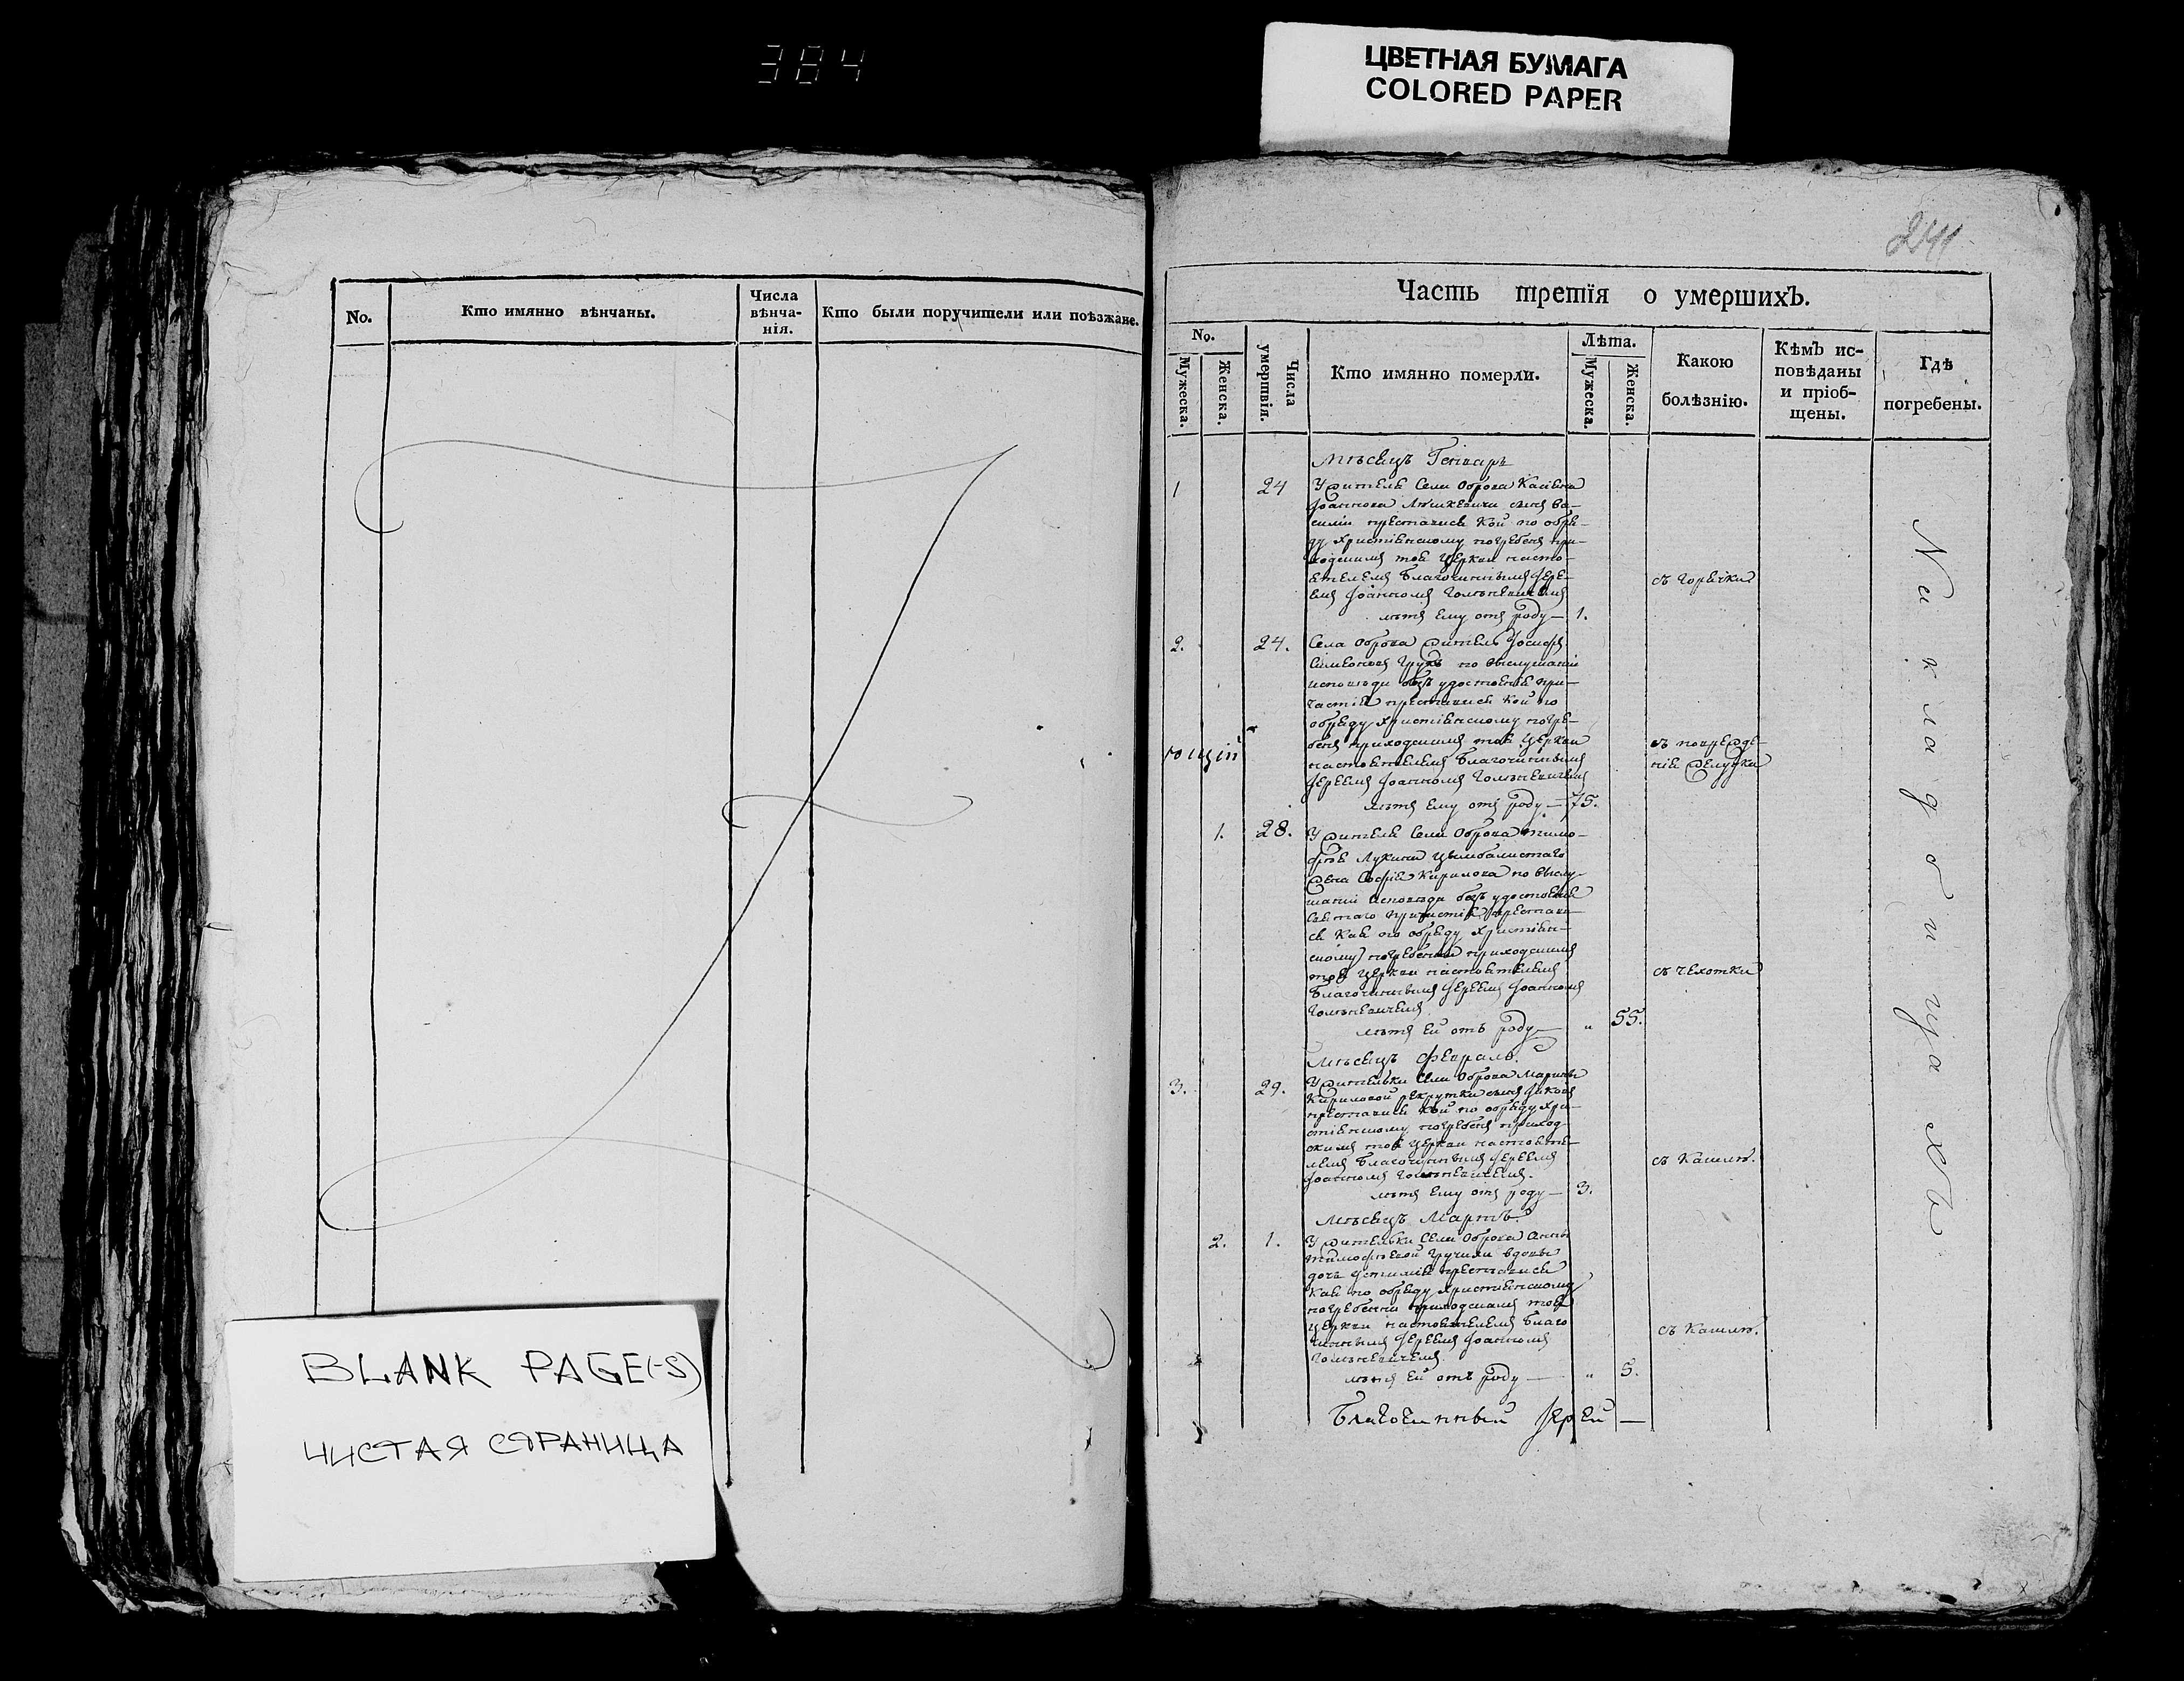 384
ЦВЕТНАЯ БУМАГА
COLORED PAPER
No.
Кто имянно вѣнчаны.
Числа вѣнча-
нія.
Кто были поручители или поѣзжане.
BLANK PAGE(-S)
ЧИСТАЯ СТРАНИЦА
241
Часть третія о умершихъ.
No.
Мужеска.
Женска.
Числа
умертвія.
Кто имянно померли.
Лѣта.
Мужеска.
Женска.
Какою
болѣзнію.
Кѣмъ ис-
повѣданы
и пріоб-
щены.
Гдѣ
погребены.
Мѣсяцъ Генварь
1
24
У жителя Села Оброва
Іоаннова сынъ Ва-
силій преставися кой по обря-
ду христіянскому погребенъ при-
ходскимъ тоя церкви насто-
ятелемъ Благочиннымъ Іере-
емъ Іоанномъ
съ горячки
лѣтъ ему отъ роду — 1.
2.
24.
Села Оброва житель Іосифъ
по выслушаніи
исповѣди безъ удостоенія при-
частія преставися кой по
обряду христіянскому погре-
бенъ приходскимъ тоя церкви
настоятелемъ Благочиннымъ
Іереемъ Іоанномъ
ющій
съ поврежде-
нія желудка
лѣтъ ему отъ роду — 75.
1.
28.
У жителя Села Оброва Тимо-
фея Лукина
жена Софія Кирилова по выслу-
шаніи исповѣди безъ удостоенія
святаго причастія преставися
коя по обряду христіян-
скому погребенна приходскимъ
тоя церкви настоятелемъ
Благочиннымъ Іереемъ Іоанномъ
съ чехотки
лѣтъ ей отъ роду — " 55.
Мѣсяцъ Февраль.
3.
29.
У жительки Села Оброва Марины
Кириловой рекрутки сынъ
преставися кой по обряду хри-
стіянскому погребенъ приход-
скимъ тоя церкви настояте-
лемъ Благочиннымъ Іереемъ
Іоанномъ
съ кашлю.
лѣтъ ему отъ роду — 3.
Мѣсяцъ Мартъ.
2.
1.
У жительки Села Оброва Анны
Тимофѣевой вдовы
дочь преставися
коя по обряду христіянскому
погребенна приходскимъ тоя
церкви настоятелемъ Благо
чиннымъ Іереемъ Іоанномъ
съ кашлю.
лѣтъ ей отъ роду — " 5.
Благочинный Іерей —
На кладбищахъ